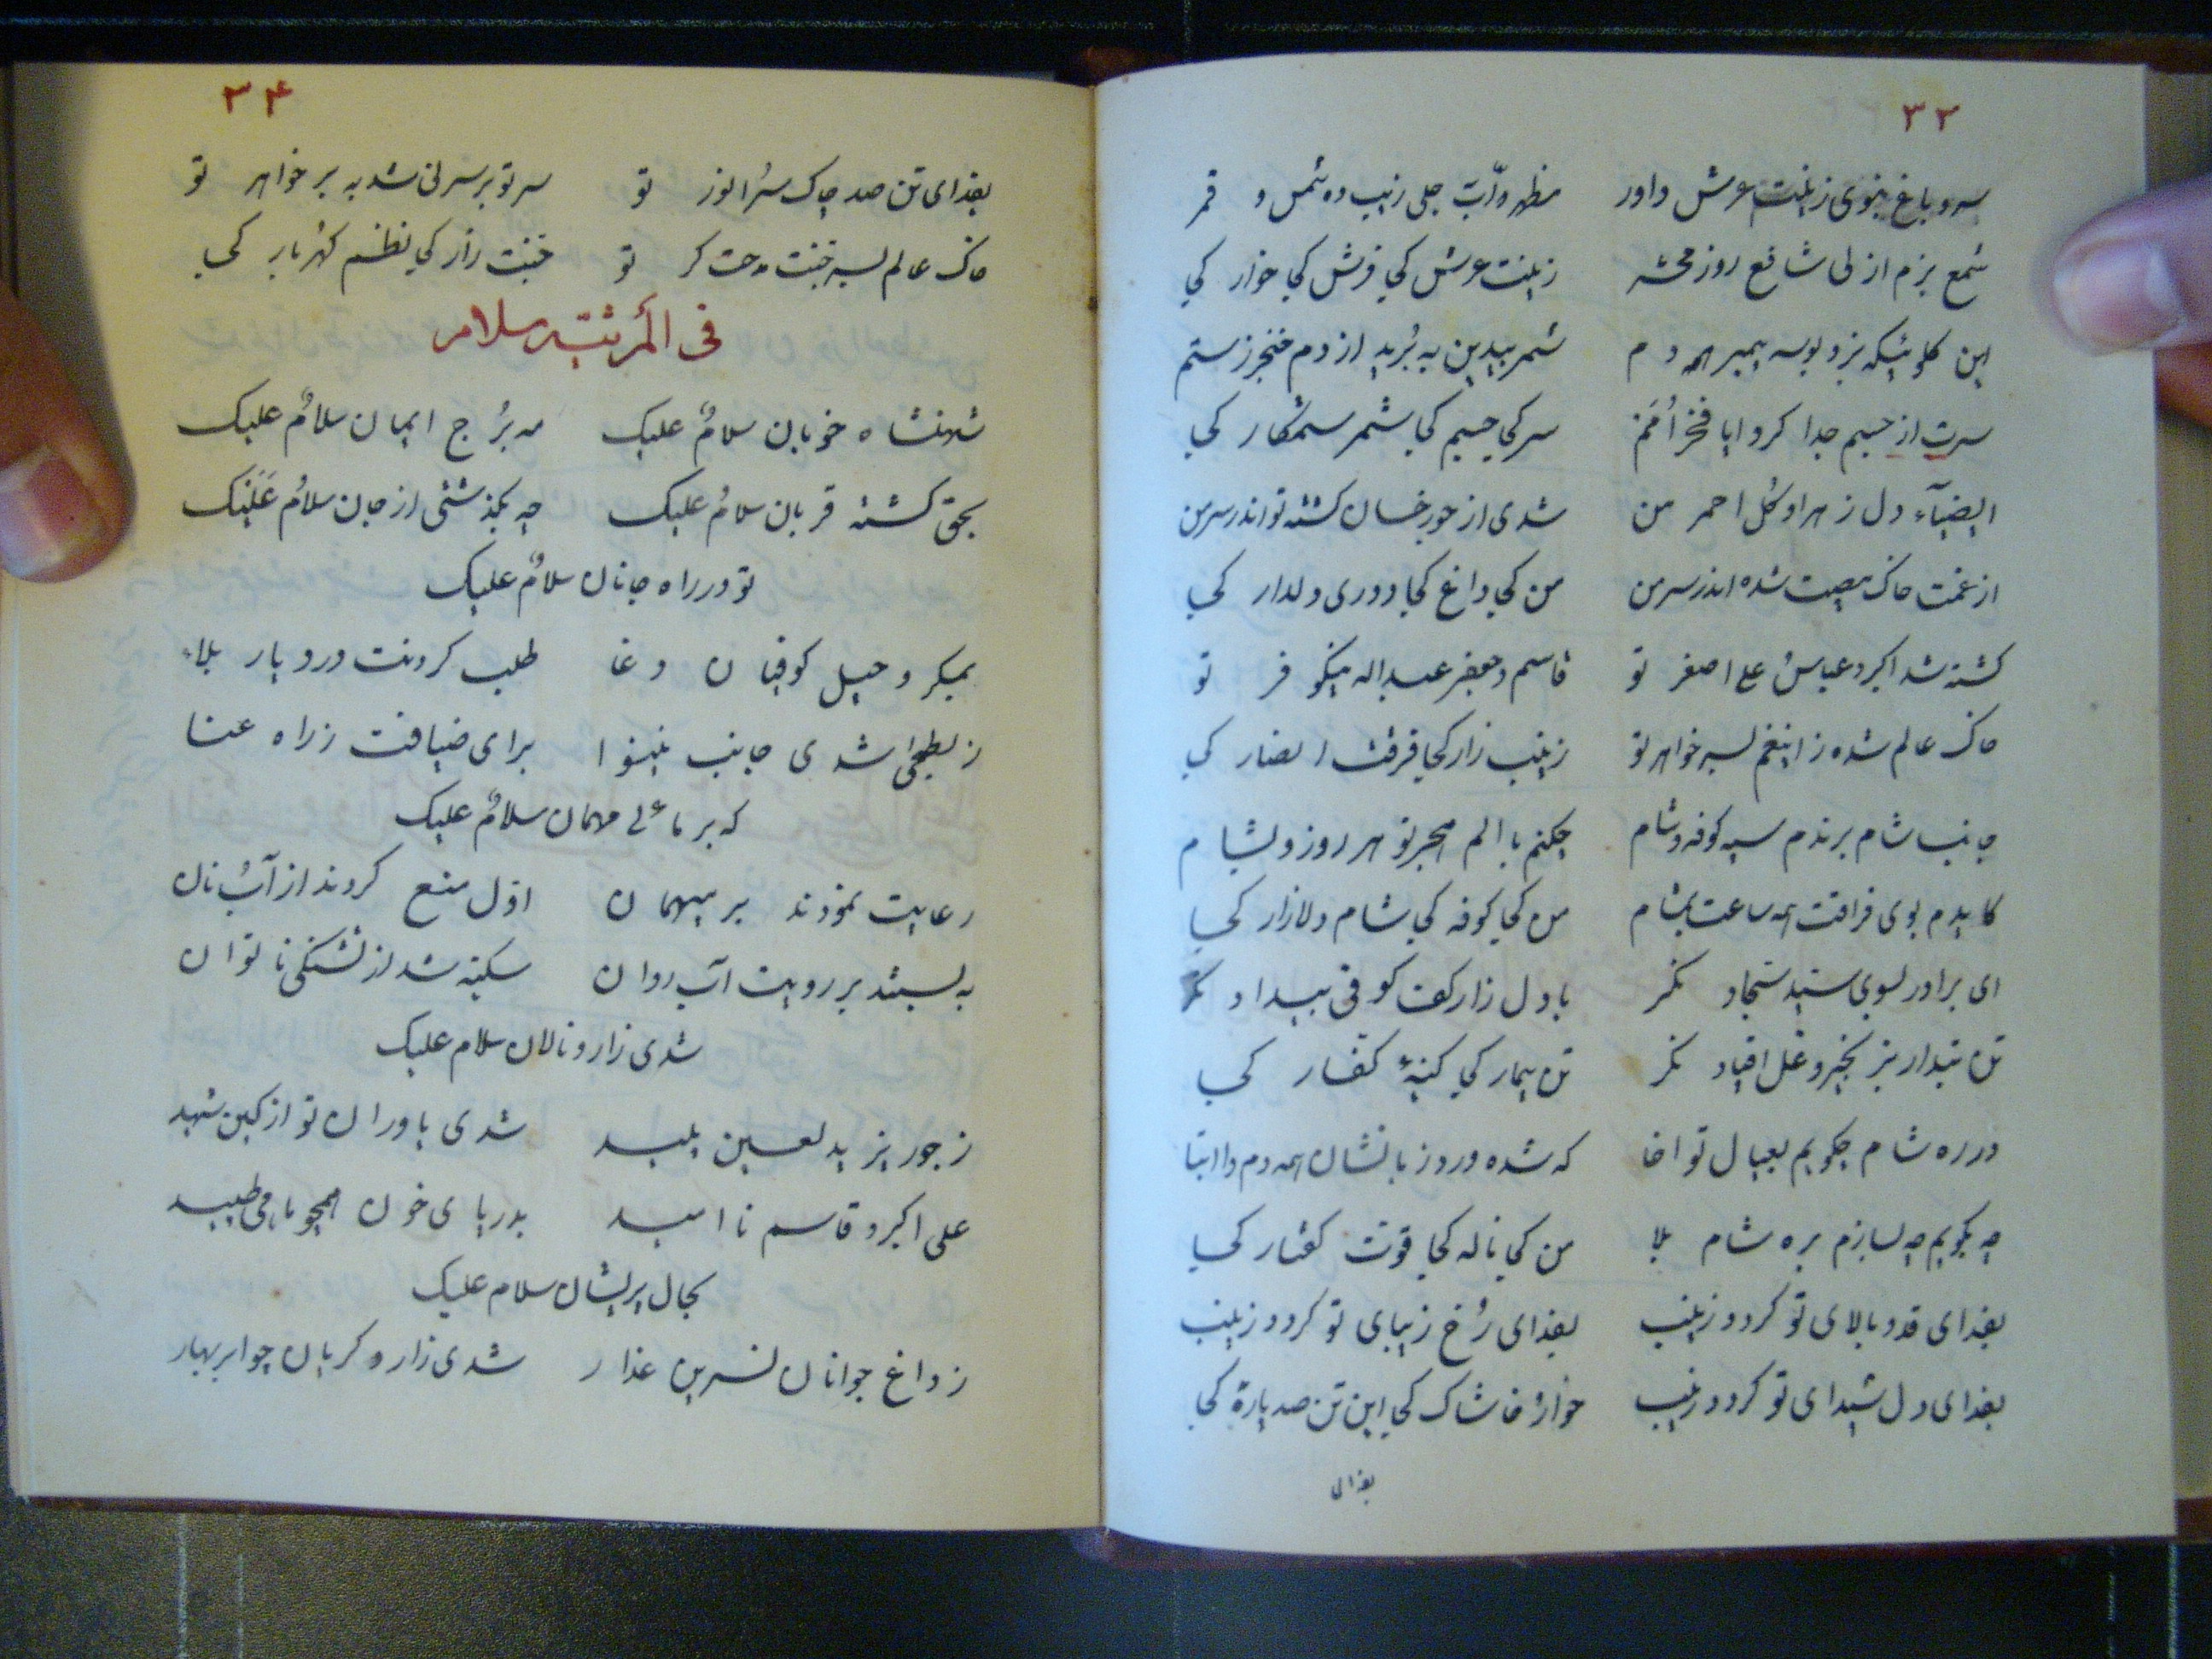 ٣٣
سرو باغ نبوی زینت عرش داور مظهر ذات جلی زیب ده شمس و قمر
شمع بزم ازلی شافع روز محشر زینت عرش کجا فرش کجا خوار کجا
این گلوئیکه بزد بوسه پیمبر همه دم شمر بیدین به بُرید از دم خنجر ز ستم
سرت از جسم جدا کرد ایا فخر اُمَم سر کجا جسم کجا شمر ستمکار کجا
ایضیآء دل زهرا و گل احمر من شدی از جور خسان کشته تو اندر سر من
از غمت خاک مصیبت شده اندر سر من من کجا داغ کجا دوری دلدار کجا
کشته شد اکبر و عباسُ علی اصغر تو قاسم و جعفر عبداله نیکو فر تو
خاک عالم شده زاینغم بسر خواهر تو زینب زار کجا فرقت انصار کجا
جانب شام برندم سپه کوفه و شام چکنم با الم هجر تو هر روز و بشام
کایدم بوی فراقت همه ساعت بمشام من کجا کوفه کجا شام دلازار کجا
ای برادر بسوی سید سجاد نگر با دل زار کفت کوفی بیداد نگر
تن تبدار بزنجیر و غُل افتاد نگر تن بیمار کجا کینهٔ کفار کجا
در ره شام چکویم بعیال تو اخا که شده ورد زبانشان همه دم وا ابتا
چه بگویم چه بسازم بره شام بلا من کجا ناله کجا قوت گفتار کجا
بفدای قد و بالای تو گردد زینب بفدای رُخ زیبای تو گردد زینب
بفدای دل شیدای تو گردد زینب خوار خاشاک کجا این تن صد پاره کجا
بفدای
٣۴
بفدای تن صد چاک سُر انور تو سر تو بر سر نی شد به بر خواهر تو
خاک عالم بسر جنت مدحت گر تو جنت زار کجا نظم گهر بار کجا
فی المرثیته سلام
شهنشاه خوبان سلامٌ علیک مه بُرج ایمان سلامٌ علیک
بحق کشته قربان سلامٌ علیک چه بگذشتی از جان سلامٌ عَلَیک
تو در راه جانان سلامٌ علیک
بمکر و حیل کوفیان دغا طلب کردنت در دیار بلاء
ز بطحی شدی جانب نینوا برای ضیافت ز راه عنا
که بر ما مهمان سلامٌ علیک
رعایت نمودند بر میهمان اوّل منع کردند از آبُ نان
به بستند بر رویت آب روان سکینه شد از تشنگی ناتوان
شدی زار و نالان سلام علیک
ز جور یزید لعین پلید شدی یاوران تو از کین شهید
علی اکبر و قاسم نا امید بدریای خون همچو ماهی طپید
بحال پریشان سلام علیک
ز داغ جوانان نسرین عذار شدی زار و گریان چو ابر بهار